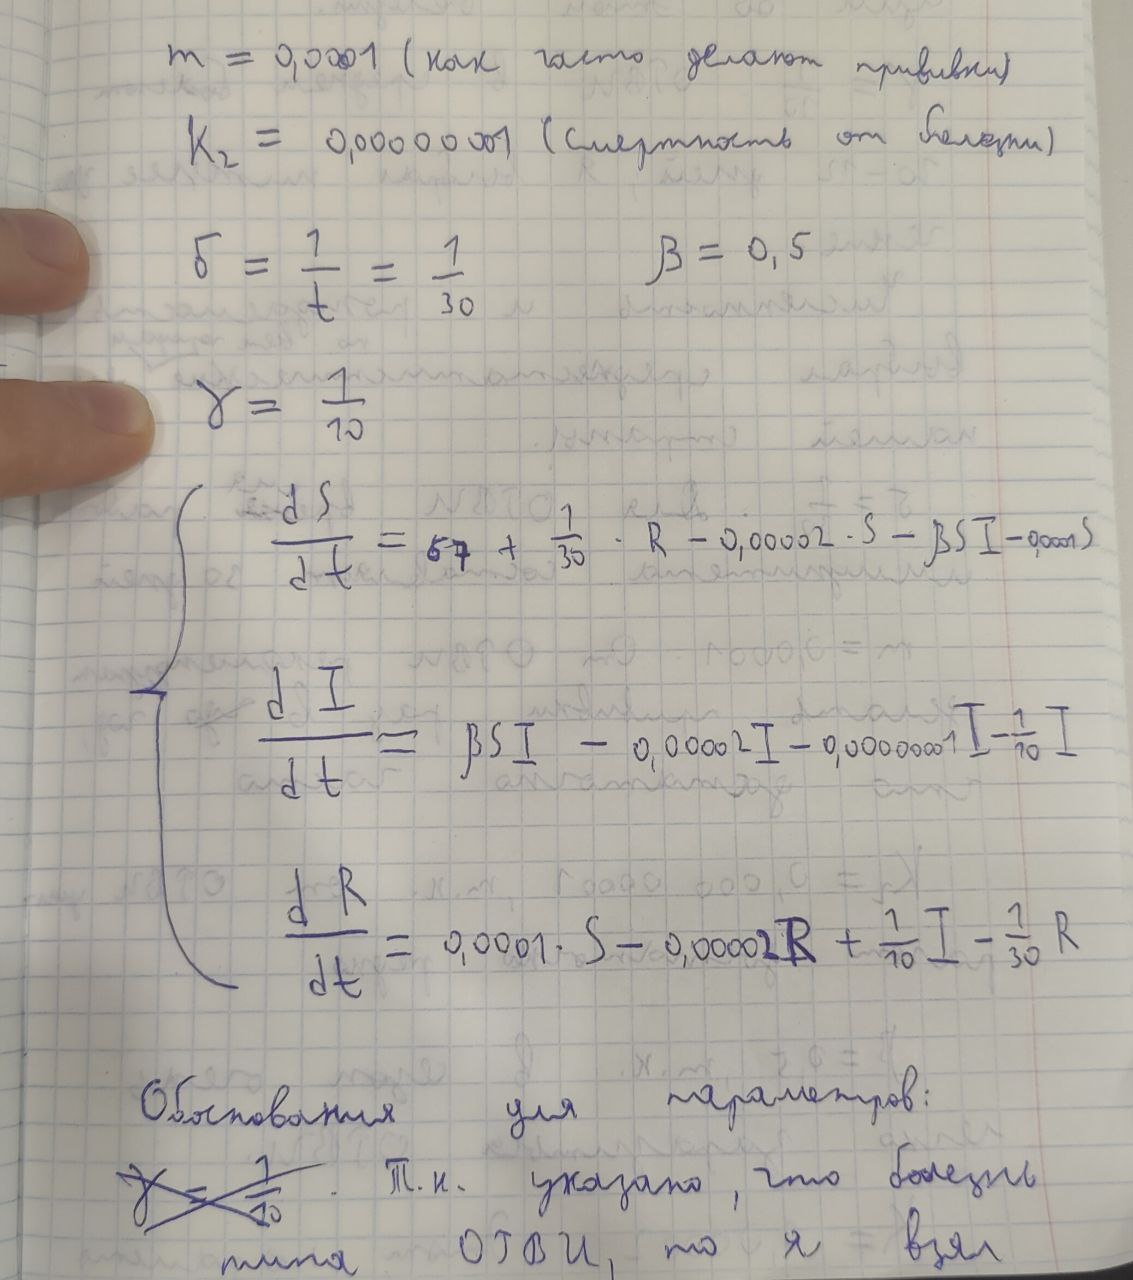 m = 0,0001 (как часто делают прививки)
K₂ = 0,00000001 (смертность от болезни)
δ = 1/t = 1/30 β = 0,5
γ = 1/10
dS/dt = 57 + 1/30 · R - 0,00002 · S - βSI - 0,0001S
dI/dt = βSI - 0,00002I - 0,00000001I - 1/10 I
dR/dt = 0,0001 · S - 0,00002R + 1/10 I - 1/30 R
Обоснования для параметров:
γ = 1/10 . Т.к. указано, что болезнь
типа ОРВИ, то я взял